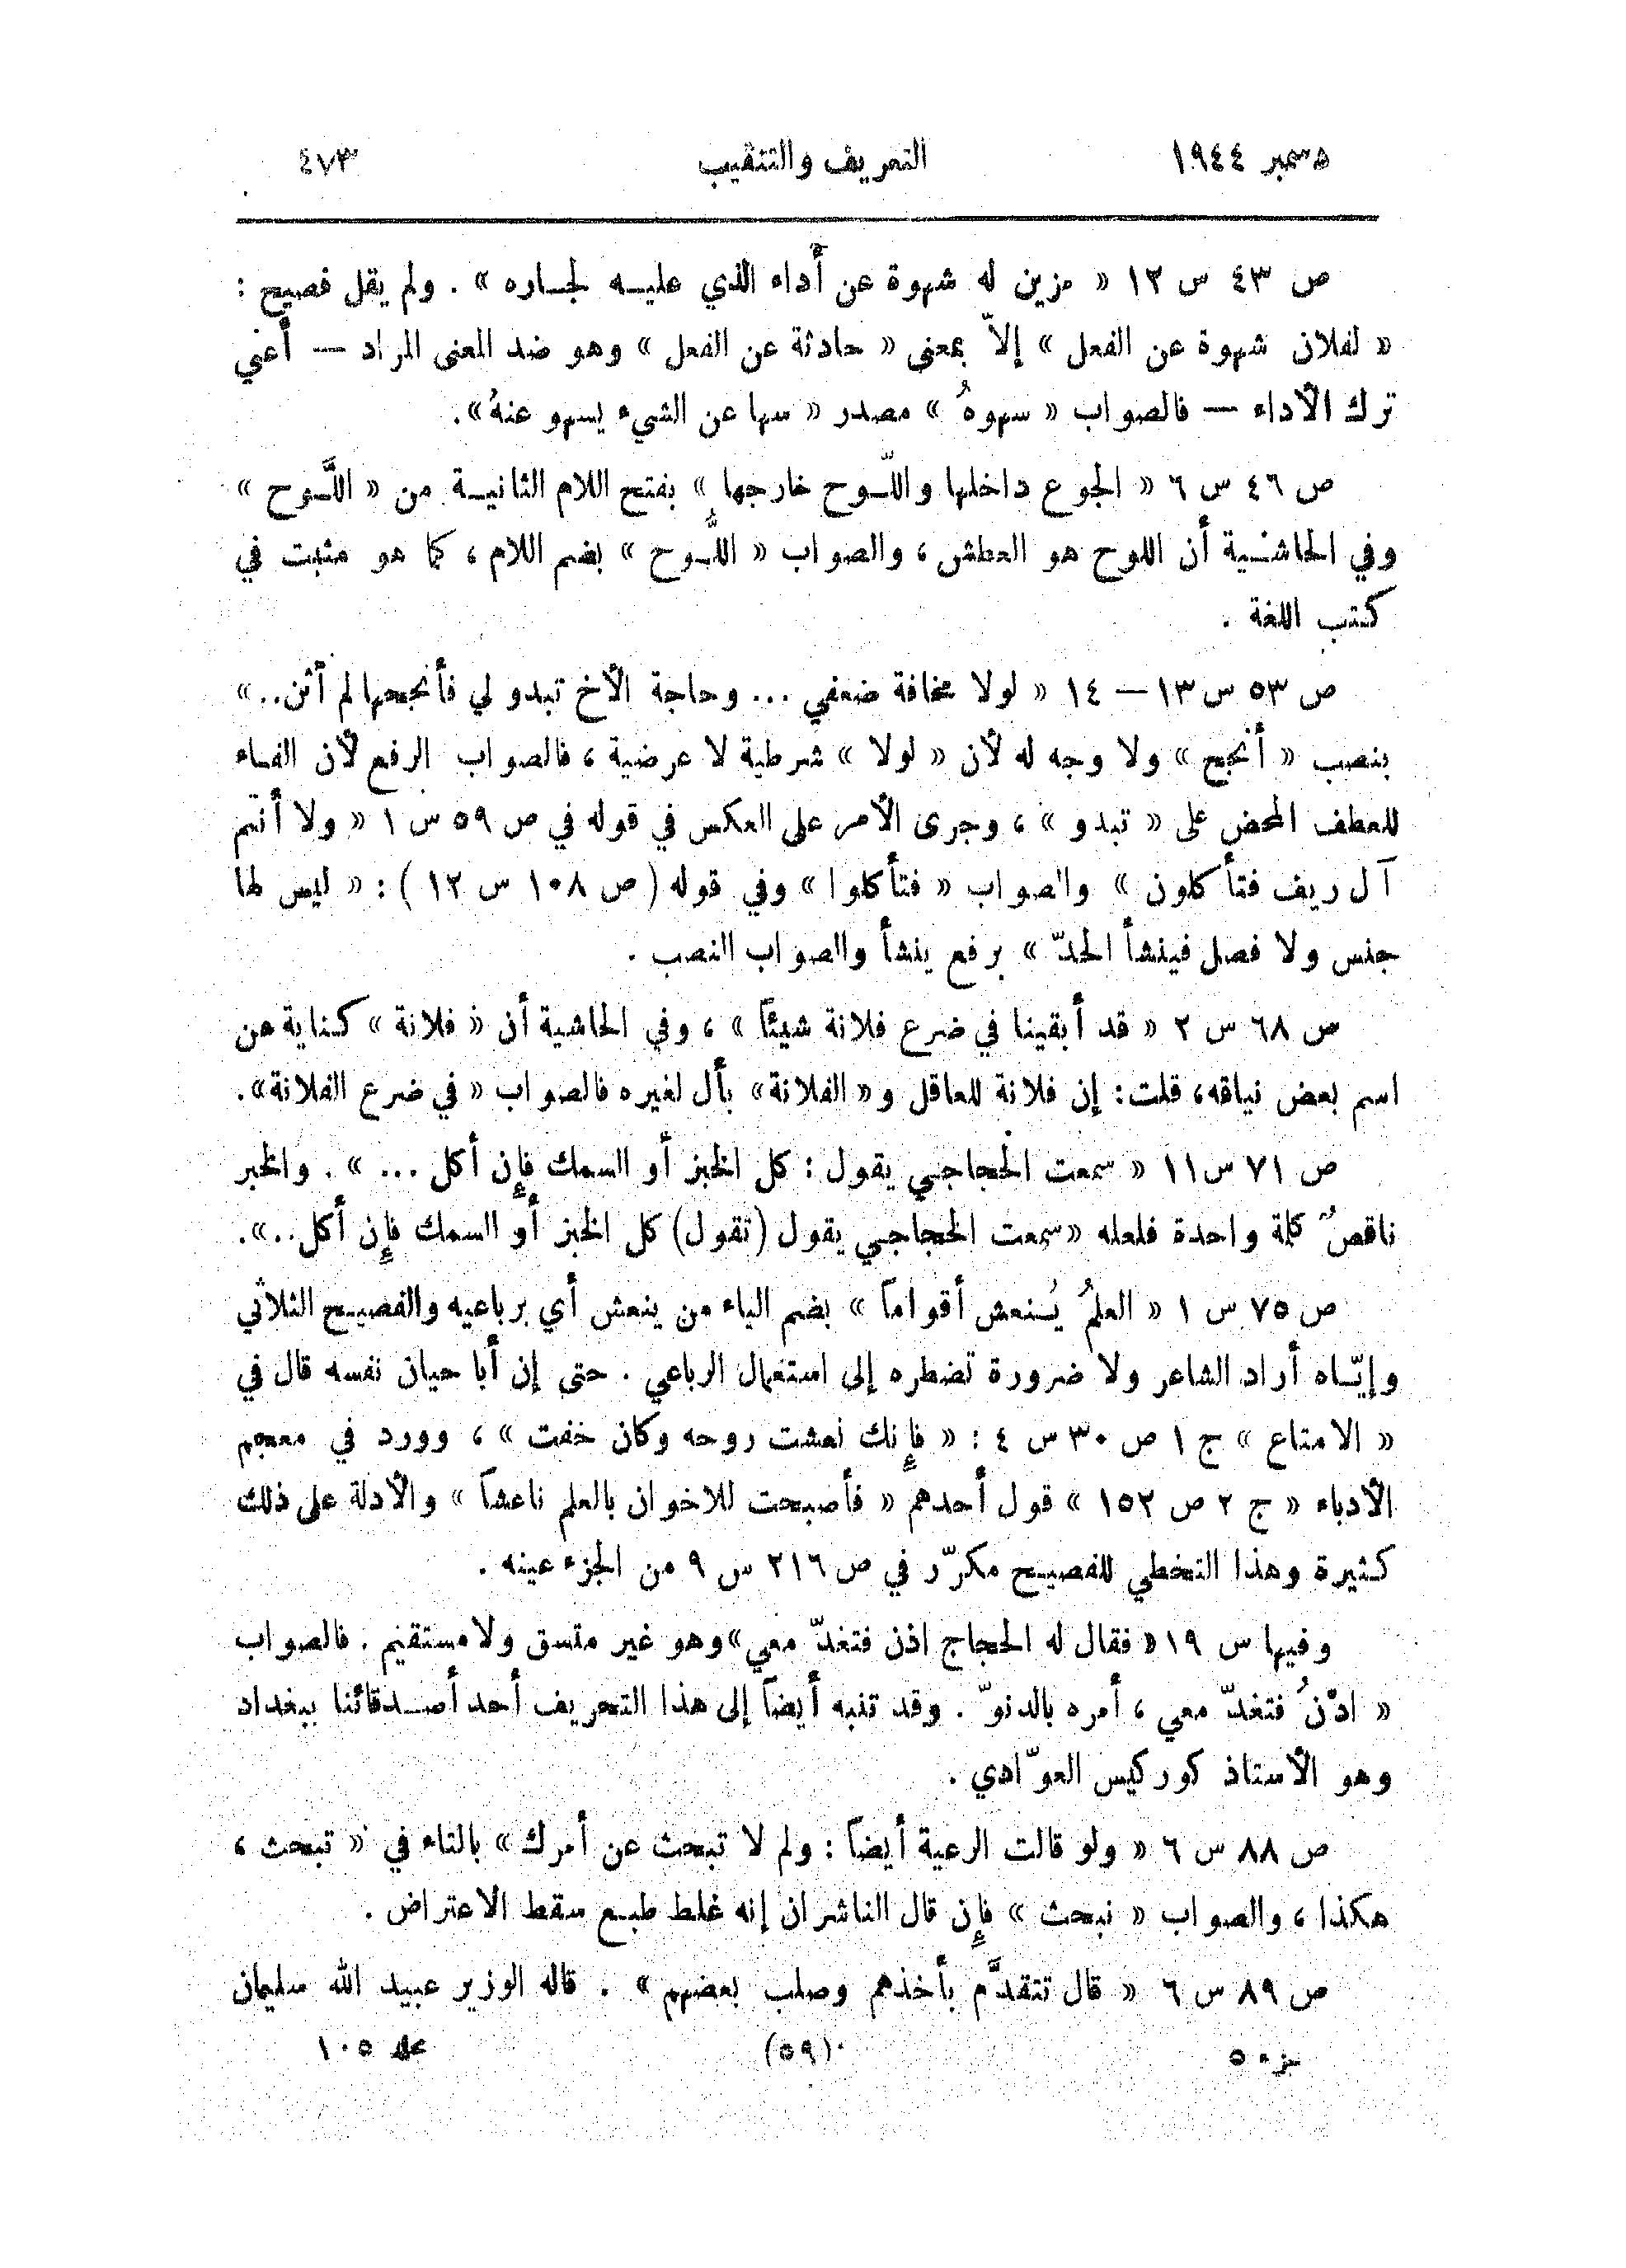 دسمبر ١٩٤٤ التعريف والتنقيب ٤٧٣
ص ٤٣ س ١٢ « مزين له شهوة عن أداء الذي عليه لجاره » . ولم يقل فصيح :
« لفلان شهوة عن الفعل » إلاّ بمعنى « حادثة عن الفعل » وهو ضد المعنى المراد — أعني
ترك الأداء — فالصواب « سهوهُ » مصدر « سها عن الشيء يسهو عنهُ».
ص ٤٦ س ٦ « الجوع داخلها واللَّوح خارجها » بفتح اللام الثانية من « اللَّوح »
وفي الحاشية أن اللوح هو العطش ، والصواب « اللُّوح » بضم اللام ، كما هو مثبت في
كتب اللغة .
ص ٥٣ س ١٣ — ١٤ « لولا مخافة ضعفي ... وحاجة الأخ تبدو لي فأنجحها لم أثن..»
بنصب « أنجح » ولا وجه له لأن « لولا » شرطية لا عرضية ، فالصواب الرفع لأن الفاء
للعطف المحض على « تبدو » ، وجرى الأمر على العكس في قوله في ص ٥٩ س ١ « ولا أنتم
آل ريف فتأكلون » والصواب « فتأكلوا » وفي قوله ( ص ١٠٨ س ١٢ ) : « ليس لها
جنس ولا فصل فينشأ الحدّ » برفع ينشأ والصواب النصب .
ص ٦٨ س ٢ « قد أبقينا في ضرع فلانة شيئاً » ، وفي الحاشية أن « فلانة » كناية عن
اسم بعض نياقه، قلت: إن فلانة للعاقل و« الفلانة» بأل لغيره فالصواب « في ضرع الفلانة».
ص ٧١ س١١ « سمعت الحجاجي يقول : كل الخبز أو السمك فإن أكل ... » . والخبر
ناقصٌ كلمة واحدة فلعله «سمعت الحجاجي يقول (تقول) كل الخبز أو السمك فإن أكل..».
ص ٧٥ س ١ « العلمُ يُنعش أقواماً » بضم الياء من ينعش أي برباعيه والفصيح الثلاثي
وإيّاه أراد الشاعر ولا ضرورة تضطره إلى استعمال الرباعي . حتى إن أبا حيان نفسه قال في
« الامتاع » ج ١ ص ٣٠ س ٤ : « فإنك نعشت روحه وكان خفت » ، وورد في معجم
الأدباء « ج ٢ ص ١٥٢ » قول أحدهم « فأصبحت للاخوان بالعلم ناعشاً » والأدلة على ذلك
كثيرة وهذا التخطي للفصيح مكرّر في ص ٢١٦ س ٩ من الجزء عينه .
وفيها س ١٩ « فقال له الحجاج اذن فتغدّ معي» وهو غير متسق ولا مستقيم . فالصواب
« ادْنُ فتغدّ معي ، أمره بالدنوّ . وقد تنبه أيضاً إلى هذا التحريف أحد أصدقائنا ببغداد
وهو الأستاذ كوركيس العوّادي .
ص ٨٨ س ٦ « ولو قالت الرعية أيضاً : ولم لا تبحث عن أمرك » بالتاء في « تبحث ،
هكذا ، والصواب « نبحث » فإن قال الناشران إنه غلط طبع سقط الاعتراض .
ص ٨٩ س ٦ « قال تتقدَّم بأخذهم وصلب بعضهم » . قاله الوزير عبيد الله سليمان
جزء ٥ (٥٩) مجلد ١٠٥